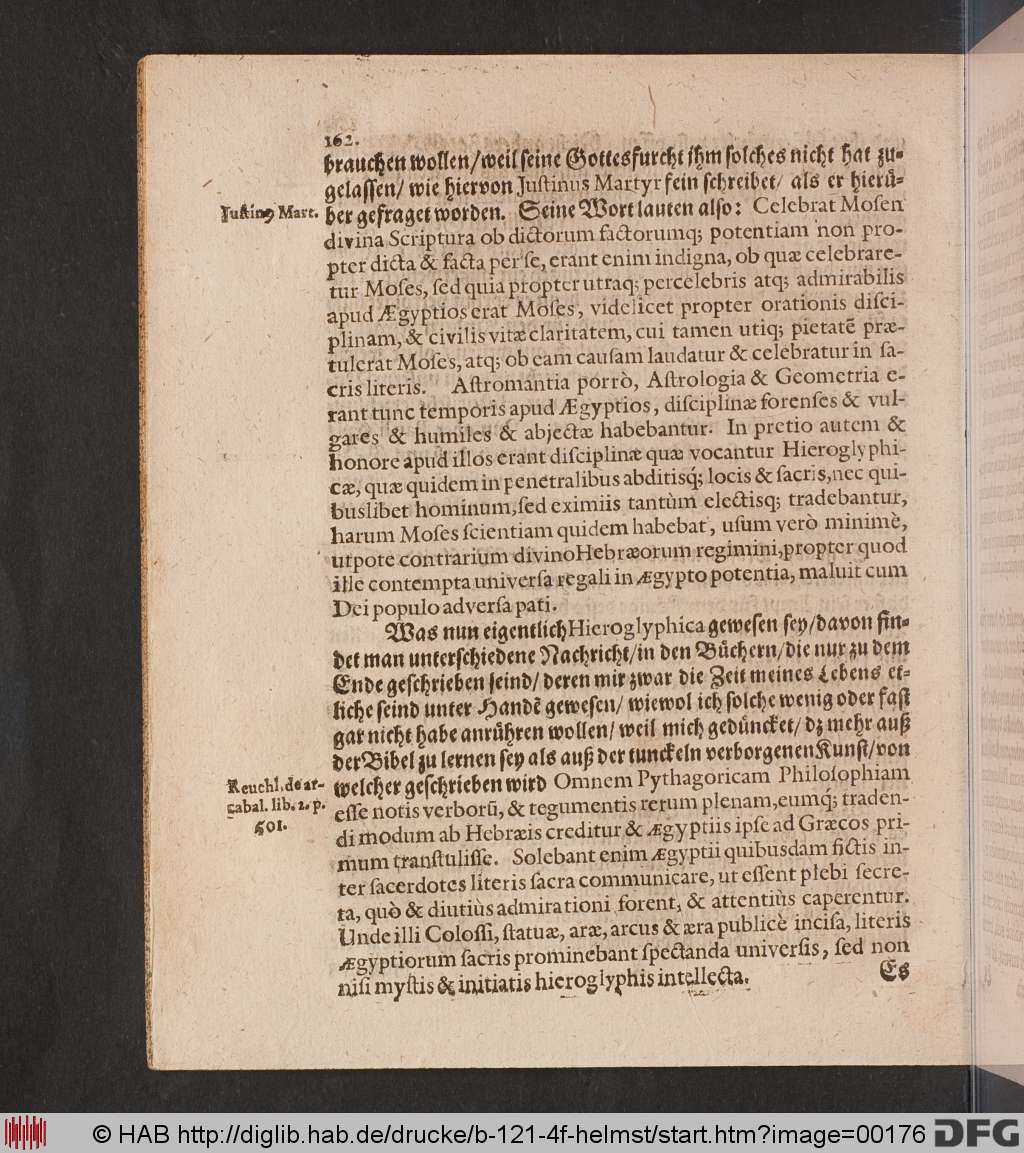 162.
brauchen wollen/weil seine Gottesfurcht ihm solches nicht hat zu-
gelassen/ wie hiervon Justinus Martyr fein schreibet/ als er hierü-
Justinꝰ Mart.
ber gefraget worden. Seine Wort lauten also: Celebrat Mosen
divina Scriptura ob dictorum factorumq; potentiam non pro-
pter dicta & facta per se, erant enim indigna, ob quæ celebrare-
tur Moses, sed quia propter utraq; percelebris atq; admirabilis
apud Ægyptios erat Moses, videlicet propter orationis disci-
plinam, & civilis vitæ claritatem, cui tamen utiq; pietatẽ præ-
tulerat Moses, atq; ob eam causam laudatur & celebratur in sa-
cris literis. Astromantia porrò, Astrologia & Geometria e-
rant tunc temporis apud Ægyptios, disciplinæ forenses & vul-
gares & humiles & abjectæ habebantur. In pretio autem &
honore apud illos erant disciplinæ quæ vocantur Hieroglyphi-
cæ, quæ quidem in penetralibus abditisq́; locis & sacris, nec qui-
buslibet hominum, sed eximiis tantùm electisq; tradebantur,
harum Moses scientiam quidem habebat, usum verò minimè,
utpote contrarium divino Hebræorum regimini, propter quod
ille contempta universa regali in Ægypto potentia, maluit cum
Dei populo adversa pati.
Was nun eigentlich Hieroglyphica gewesen sey/davon fin-
det man unterschiedene Nachricht/in den Büchern/die nur zu dem
Ende geschrieben seind/ deren mir zwar die Zeit meines Lebens et-
liche seind unter Handẽ gewesen/ wiewol ich solche wenig oder fast
gar nicht habe anrühren wollen/ weil mich gedüncket/ dz mehr auß
der Bibel zu lernen sey als auß der tunckeln verborgenen Kunst/von
Reuchl. de ar-
cabal. lib. 2. p.
501.
welcher geschrieben wird Omnem Pythagoricam Philosophiam
esse notis verborũ, & tegumentis rerum plenam, eumq́; traden-
di modum ab Hebræis creditur & Ægyptiis ipse ad Græcos pri-
mum transtulisse. Solebant enim Ægyptii quibusdam fictis in-
ter sacerdotes literis sacra communicare, ut essent plebi secre-
ta, quò & diutiùs admirationi forent, & attentiùs caperentur.
Unde illi Colossi, statuæ, aræ, arcus & æra publicè incisa, literis
Ægyptiorum sacris prominebant spectanda universis, sed non
nisi mystis & initiatis hieroglyphis intellecta.
Es
© HAB http://diglib.hab.de/drucke/b-121-4f-helmst/start.htm?image=00176
DFG